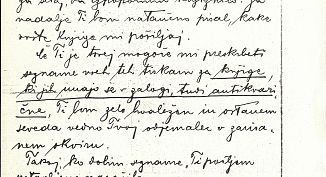 nadalje Ti bom natančno pisal, kake
vrste knjige mi pošiljaj.
Če Ti je torej mogoče mi preskrbeti
sezname vseh teh tiskarn za knjige,
kijih imajo se v zalogi, tudi antikvari
čne, Ti bom zelo hvaležen in ostanem
seveda vedno Tvoj odjemalec v
nem okviru.
Takoj, ko dobim sezname, Ti pošljem